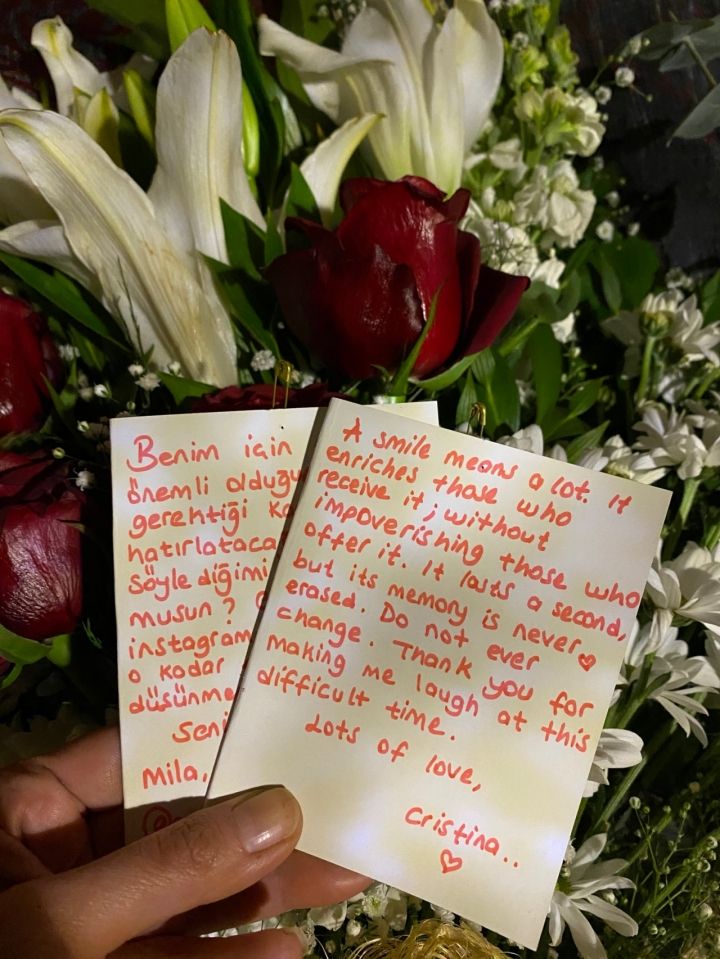 Benim için
önemli olduğu
gerektiği
hatırlataca
söylediğimi
musun?
instagram
o kadar
düşünme
Seni
Mila,
A smile means a lot. It
enriches those who
receive it; without
impoverishing those who
offer it. It lasts a second,
but its memory is never
erased. Do not ever
change. Thank you for
making me laugh at this
difficult time.
Lots of love,
Cristina..